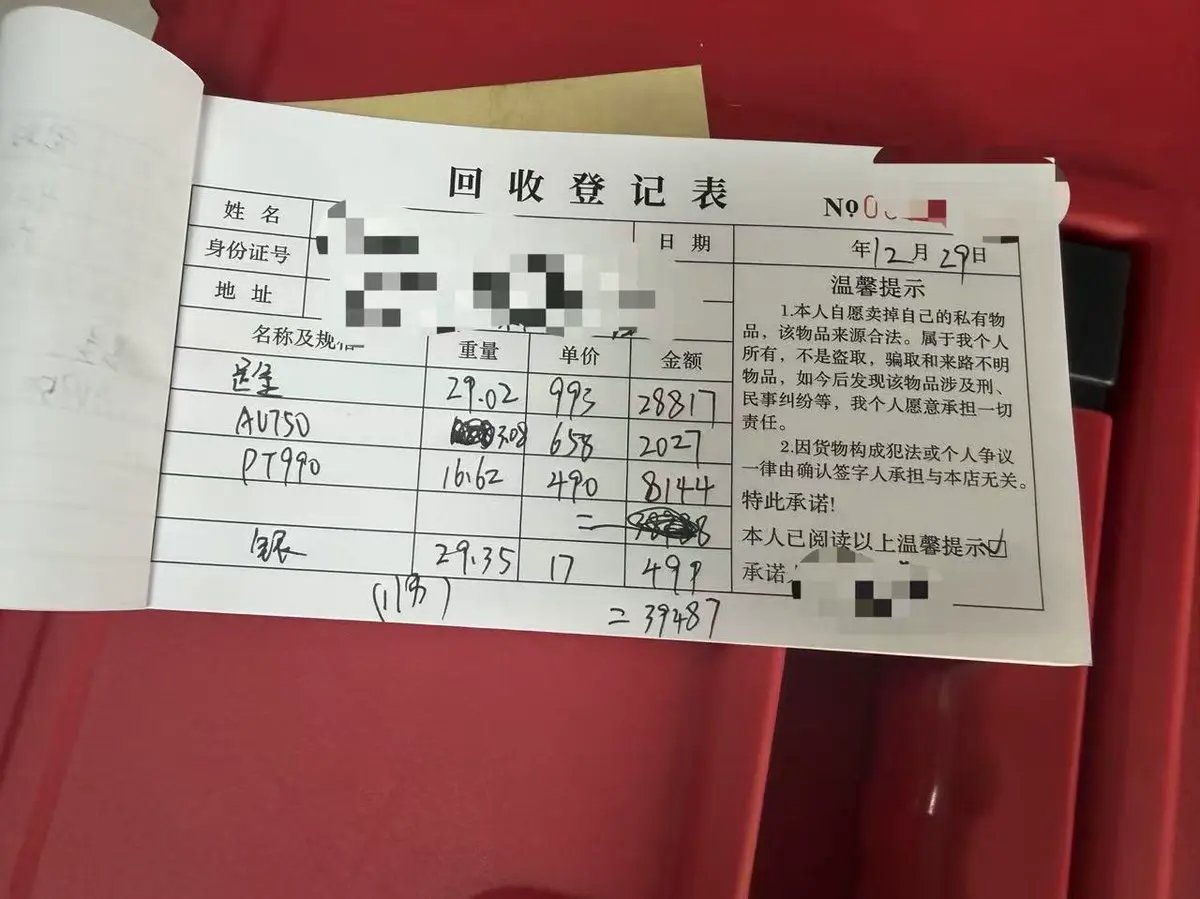 回收登记表
No 0
姓名
日期 年12月29日
身份证号
地址
温馨提示
1.本人自愿卖掉自己的私有物
品，该物品来源合法。属于我个人
所有，不是盗取，骗取和来路不明
物品，如今后发现该物品涉及刑、
民事纠纷等，我个人愿意承担一切
责任。
2.因货物构成犯法或个人争议
一律由确认签字人承担与本店无关。
特此承诺!
本人已阅读以上温馨提示☑
承诺
名称及规格 重量 单价 金额
29.02 993 28817
AU750 3.08 658 2027
PT990 16.62 490 8144
=
银 29.35 17 499
= 39487